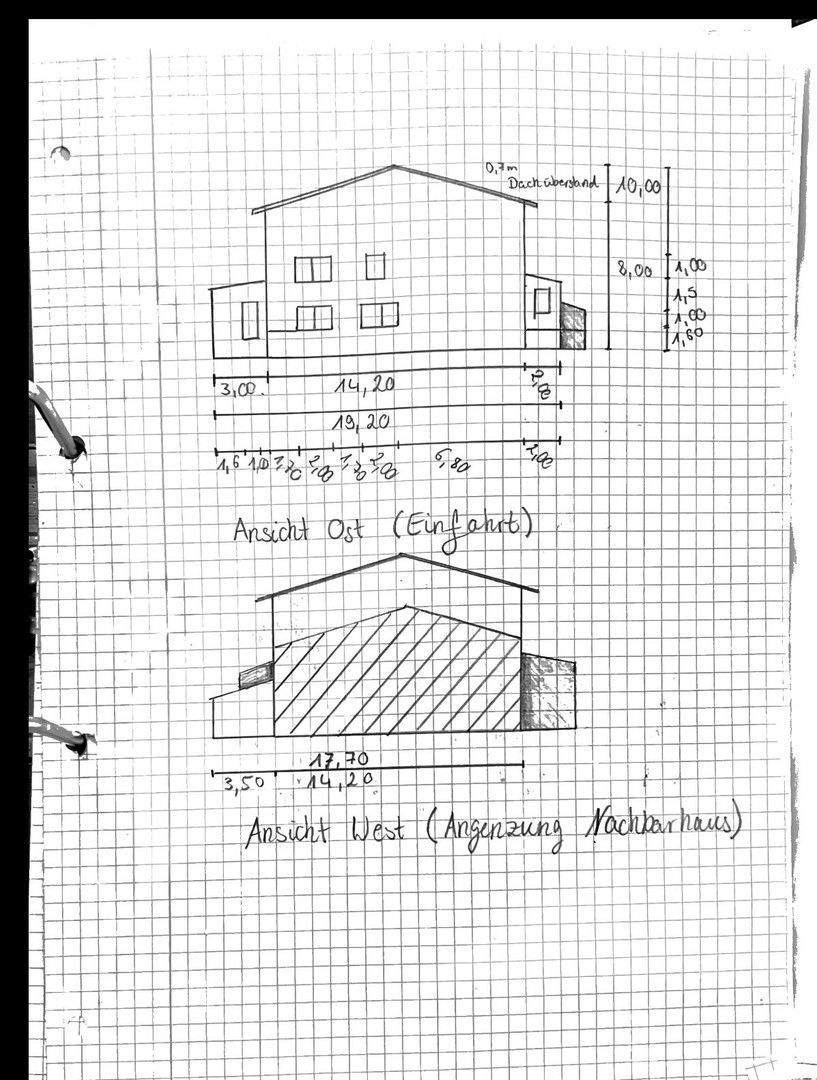 0,7m
Dachüberstand
10,00
8,00
1,00
1,5
1,00
1,60
3,00
14,20
2,00
19,20
1,6 1,0 1,20 2,00 1,70 2,00 6,80 2,00
Ansicht Ost (Einfahrt)
17,70
3,50 14,20
Ansicht West (Angenzung Nachbarhaus)